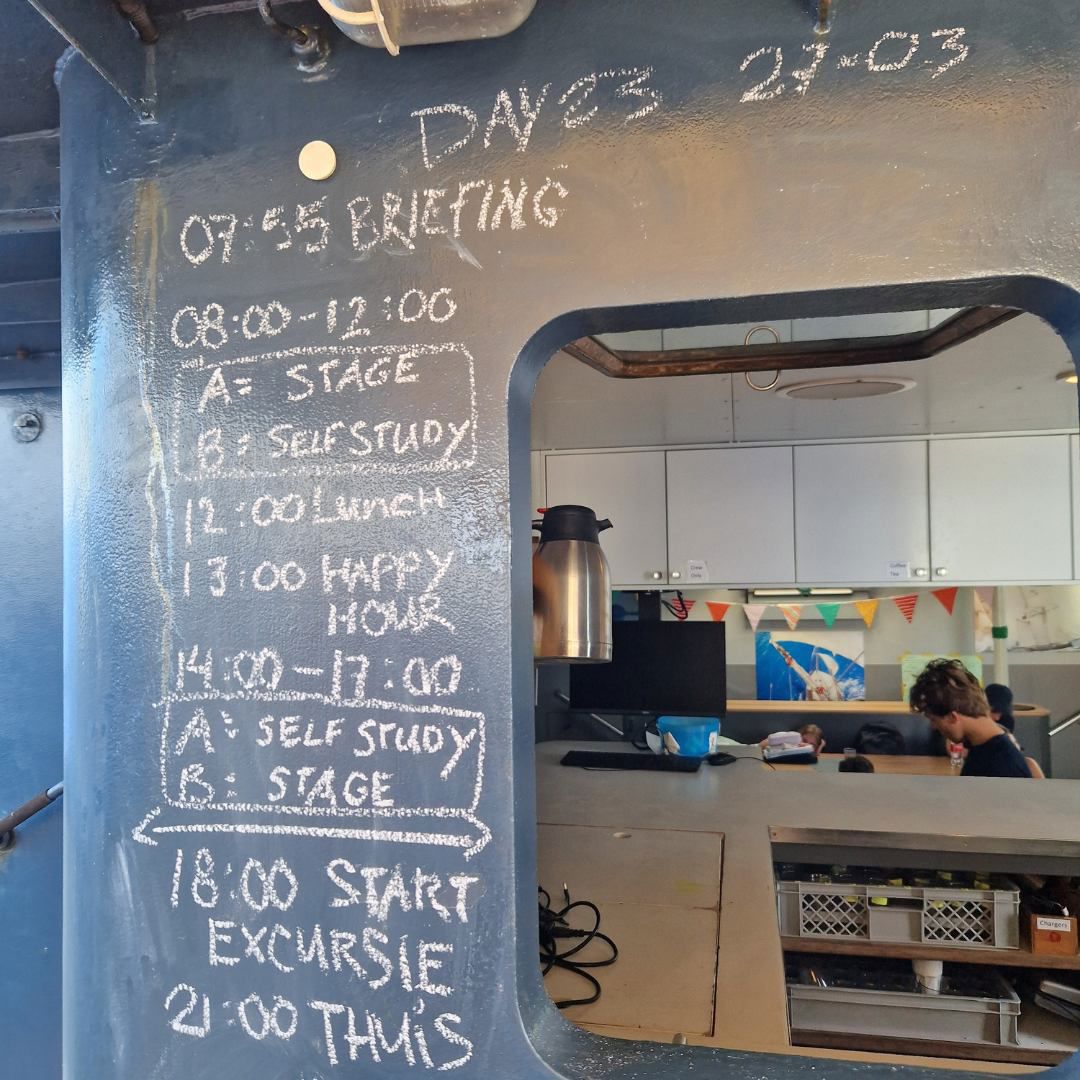 DAY 23 27-03
07:55 BRIEFING
08:00-12:00
A= STAGE
B= SELFSTUDY
12:00 Lunch
13:00 HAPPY
HOUR
14:00-17:00
A= SELF STUDY
B= STAGE
18:00 START
EXCURSIE
21:00 THUIS
Crew
Only
Coffee
Tea
Chargers